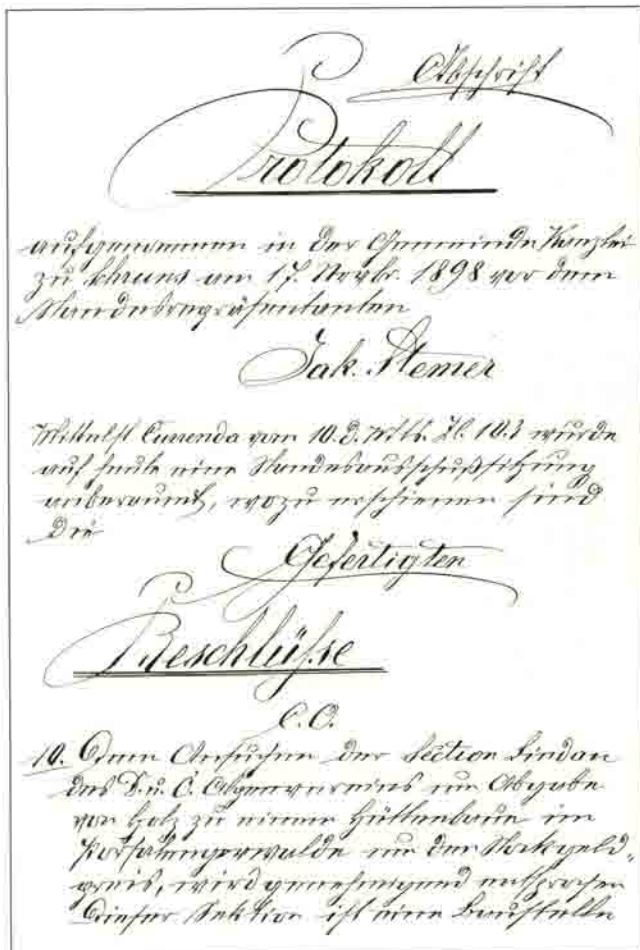 Abschrift
Protokoll
aufgenommen in der Gemeinde Kanzlei
zu Schruns am 17. Novbr. 1898 vor dem
Standesrepräsentanten
Jak. Stemer
Mittelst Currenda vom 10. d. Mts. Zl. 103 wurde
auf heute eine Standesausschußsitzung
anberaumt, wozu erschienen sind
die
Gefertigten
Beschlüsse
C.O.
10. Dem Ansuchen der Section Lindau
des D. u. Ö. Alpenvereins um Abgabe
von Holz zu einem Hüttenbaue im
um den Stockgeld„
preis, wird genehmigend entsprochen
Dieser Sektion ist eine Baustelle